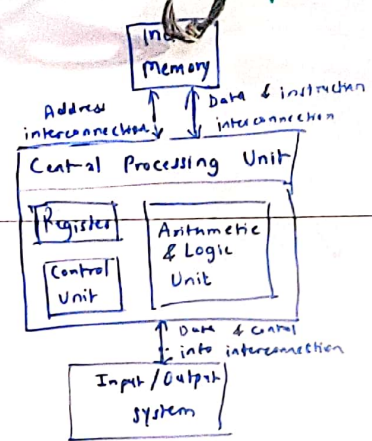 Memory
Address
interconnection
Data & instruction
interconnection
Central Processing Unit
Register
Control
Unit
Arithmetic
& Logic
Unit
Data & Control
into interconnection
Input/Output
System